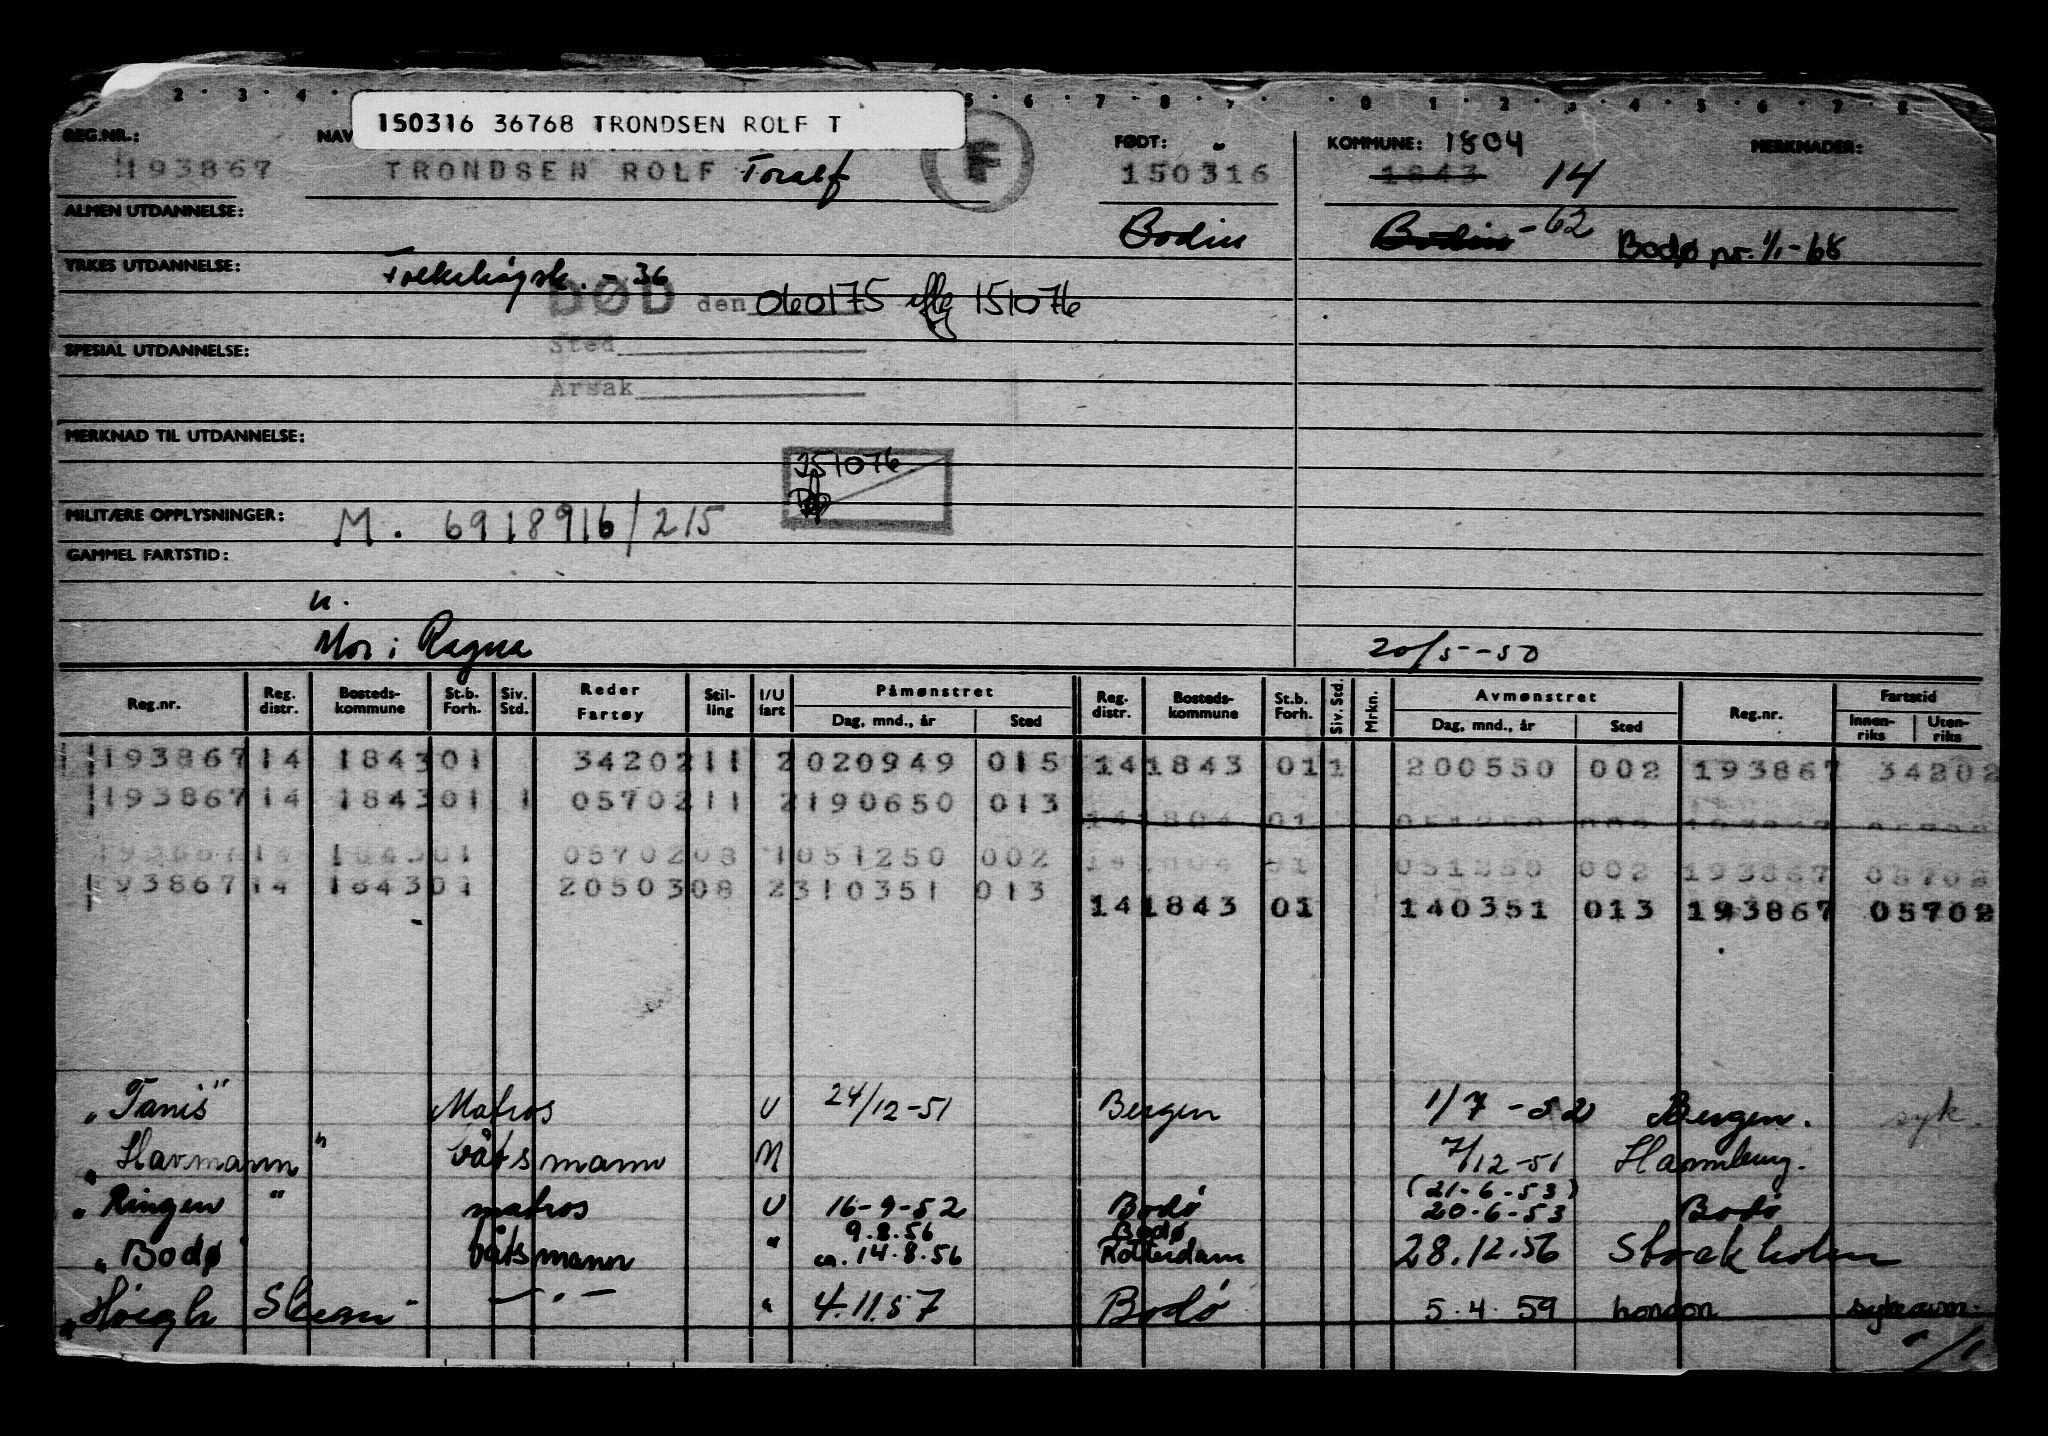 2 3 4 5 6 7 8 9 0 1 2 3 4 5 6 7 8 9
150316 36768 TRONDSEN ROLF T
REG.NR.: NAV FØDT: KOMMUNE: 1804 MERKNADER:
193867 TRONDSEN ROLF Toralf F 150316 1843 14
ALMEN UTDANNELSE: Bodin Bodin -62 Bodø pr. 1/1-68
YRKES UTDANNELSE: Folkehøgsk. - 36
DØD den 060175 151076
Sted
Årsak
SPESIAL UTDANNELSE:
MERKNAD TIL UTDANNELSE:
151076
MILITÆRE OPPLYSNINGER: M. 6918916/215
GAMMEL FARTSTID:
u.
Mor: Ragna 20/5-50
Reg.nr. Reg. distr. Bosteds-kommune St.b. Forh. Siv. Std. Reder Fartøy Stil-ling I/U fart Påmønstret Dag, mnd., år Sted Reg. distr. Bosteds-kommune St.b. Forh. Siv. Std. Mrkn. Avmønstret Dag, mnd., år Sted Reg.nr. Fartstid Innen-riks Uten-riks
193867 14 1843 01 34202 11 2 020949 015 14 1843 01 1 200550 002 193867 34202
193867 14 1843 01 1 05702 11 2 190650 013
14 1804 01
193867 14 1843 01 05702 08 1 051250 002 14 1804 01 051250 002 193867 05702
193867 14 1843 01 20503 08 2 310351 013
14 1843 01 140351 013 193867 05702
"Tanis" Matros U 24/12-51 Bergen 1/7-52 Bergen. syk.
"Havmann" båtsmann N 7/12-51 Hamburg.
"Ringen" matros U 16-9-52 Bodø (21-6-53) 20-6-53 Bodø
"Bodø" båtsmann " 9.8.56 ca. 14.8.56 Bodø Rotterdam 28.12.56 Stockholm
"Höegh - " - " 4.11.57 Bodø 5.4.59 London